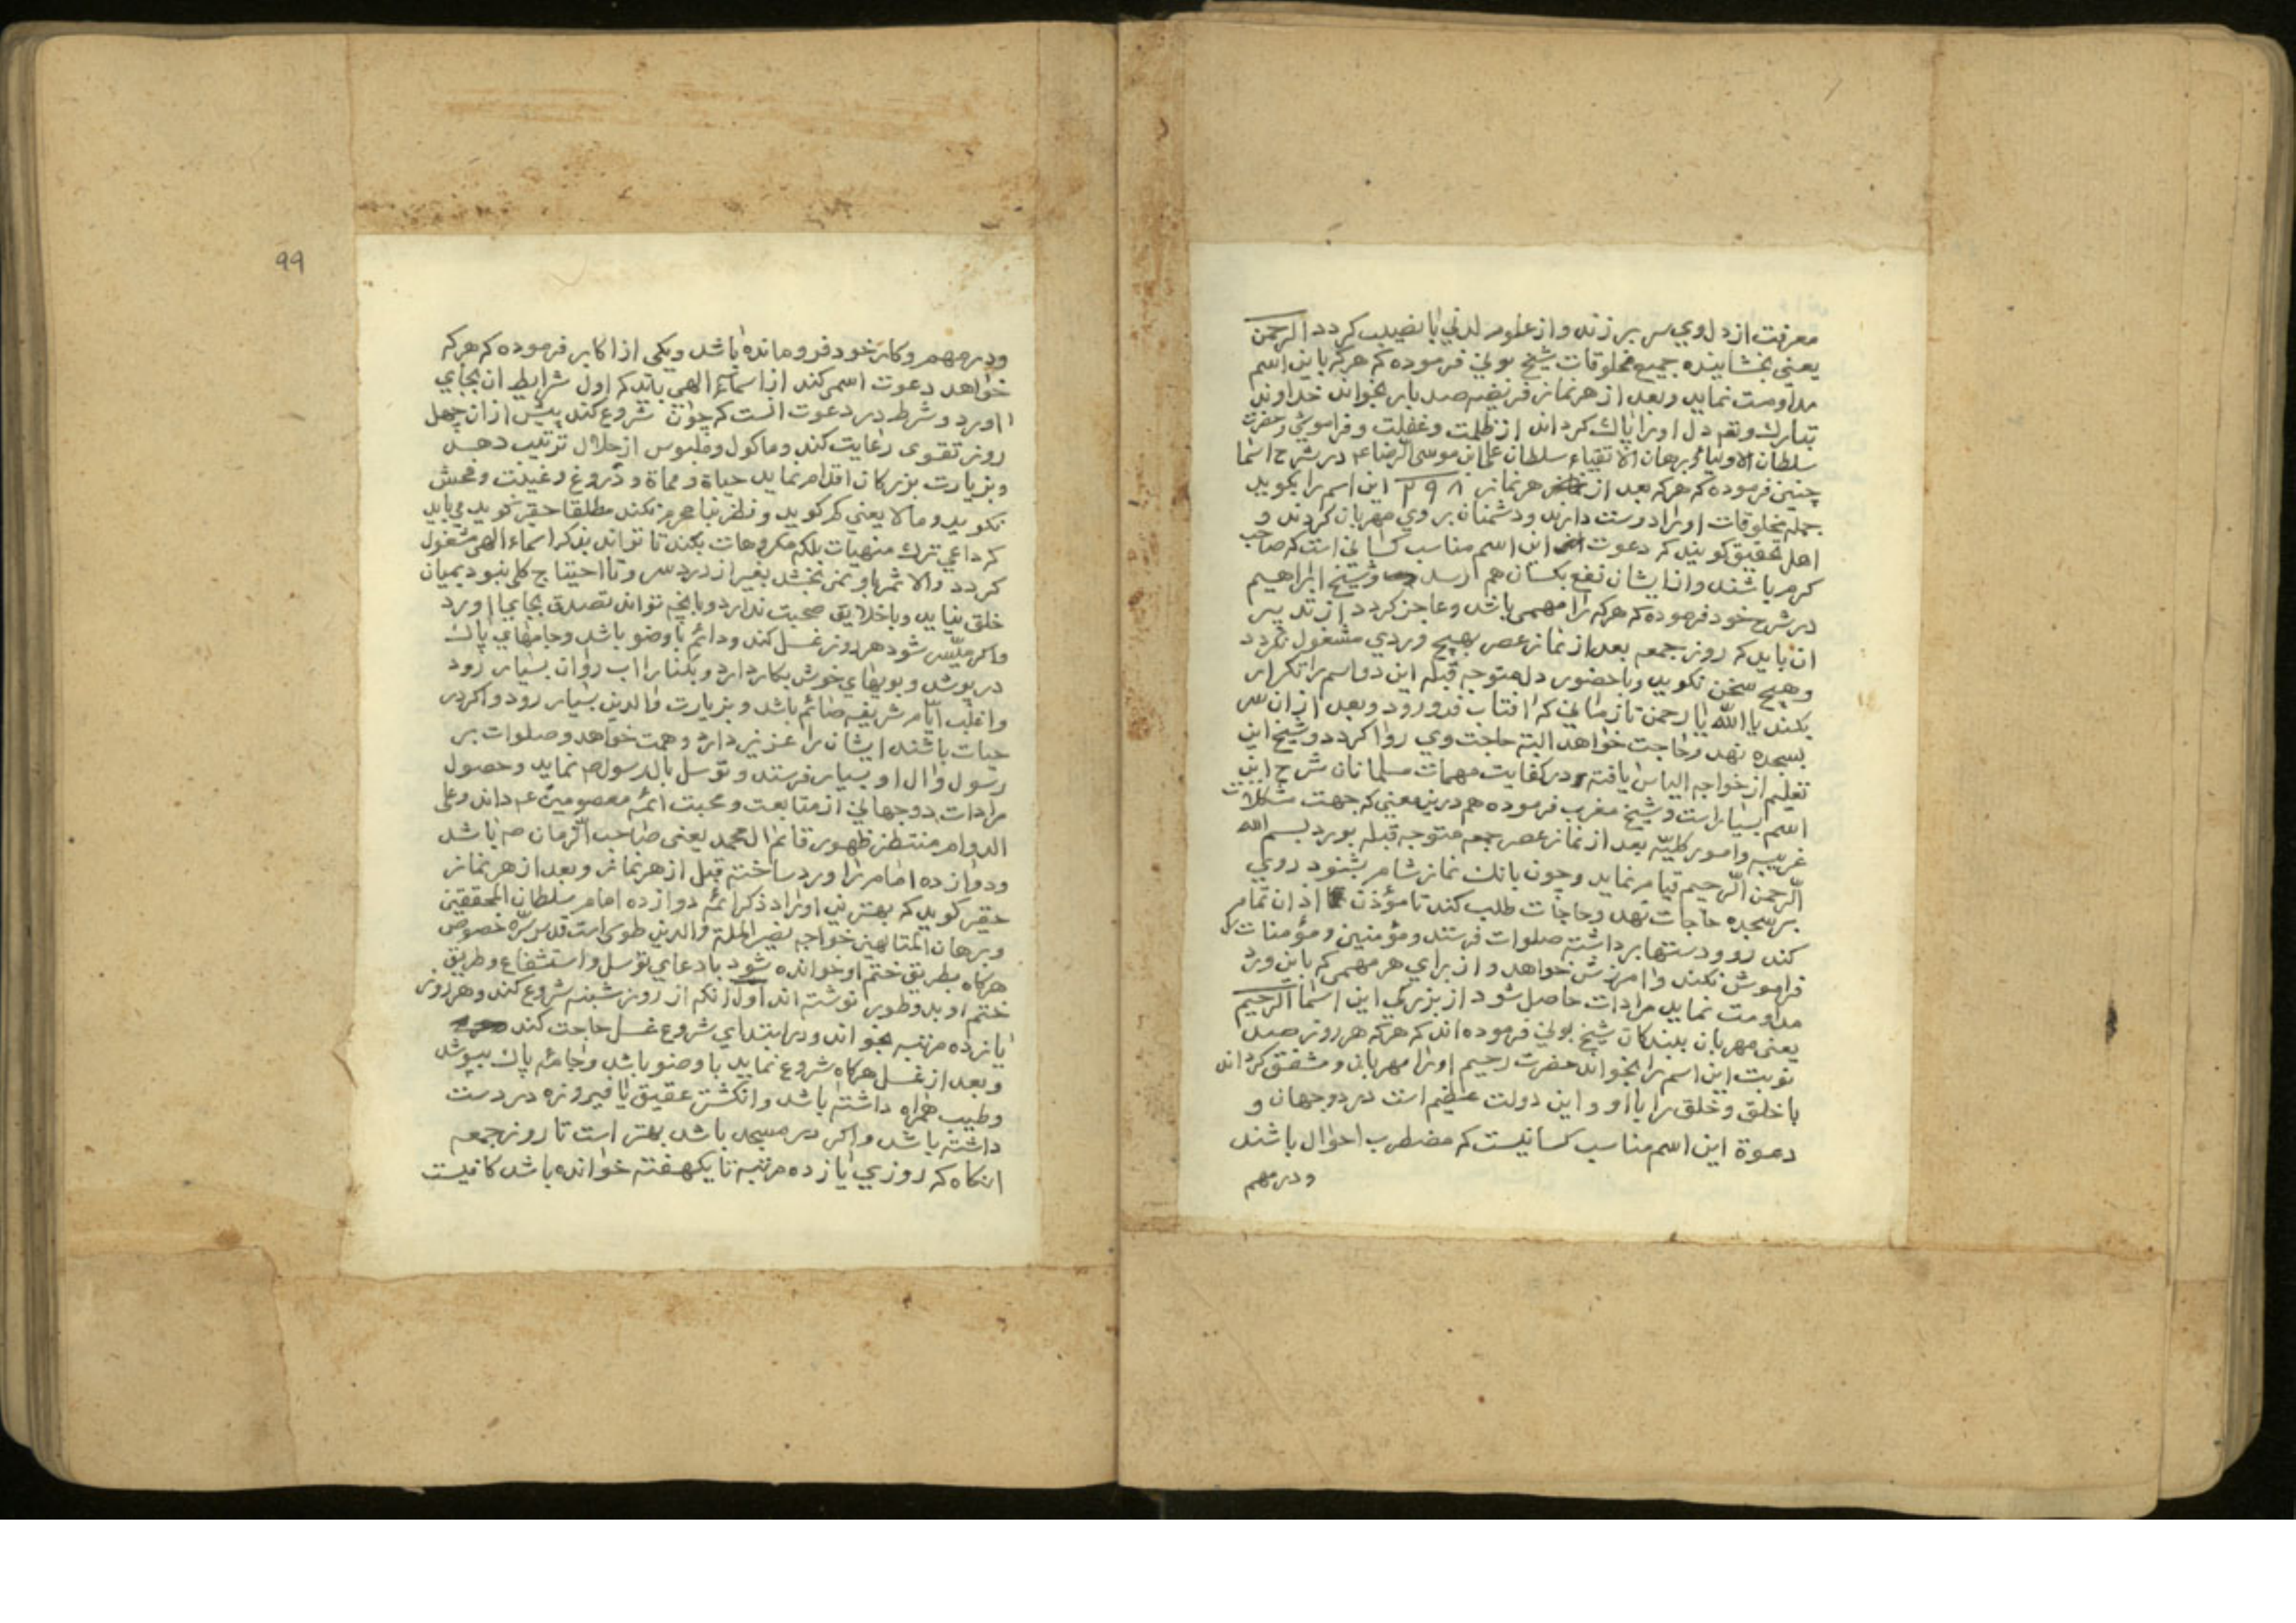 معرفت از دل وي سر بر زند و از علوم لدني با نصيب كردد الرحمن
يعني بخشاينده جميع مخلوقات شيخ بوني فرموده كه هركه باين اسم
مداومت نمايد و بعد از هر نماز فريضه صد بار بخواند خداوند
تبارك وتعـ دل اورا پاك كرداند از ظلمت وغفلت و فراموشي وحضرت
سلطان الاوليا و برهان الاتقياء سلطان علي ابن موسى الرضاء عـ در شرح اسما
چنين فرموده كه هركه بعد از هر نماز ٢٩٨ اين اسم را بكويد
جمله مخلوقات اورا دوست دارند و دشمنان بر وي مهربان كردند و
اهل تحقيق كويند كه دعوت اين اسم مناسب كساني است كه صاحب
كرم باشند و از ايشان نفع بكسان هم رسد وشيخ ابراهيم
در شرح خود فرموده كه هركه را مهمي باشد و عاجز كردد از تدبير
ان بايد كه روز جمعه بعد از نماز عصر بهيچ وردي مشغول نكردد
و هيچ سخن نكويد و با حضور دل متوجه قبله اين دو اسم را تكرار
بكند يا الله يا رحمن تا زماني كه افتاب فرو رود و بعد از ان سر
بسجده نهد و حاجت خواهد البته حاجت وي روا كردد و شيخ اين
تعليم از خواجه الياس يافته و در كفايت مهمات مسلمانان شرح اين
اسم بسيار است و شيخ مغرب فرموده هم درين معني كه جهت مشكلات
غريبه و امور كليّه بعد از نماز عصر جمعه متوجه قبله بورد بسم الله
الرحمن الرحيم قيام نمايد و چون بانك نماز شام بشنود روي
بر سجده حاجات نهد و حاجات طلب كند تا مؤذن اذان تمام
كند رو و دستها برداشته صلوات فرستد و مؤمنين و مؤمنات را
فراموش نكند و امرزش خواهد و از براي هر مهمي كه باين ورد
مداومت نمايد مرادات حاصل شود از بزركي اين اسما الرحيم
يعني مهربان ببندكان شيخ بوني فرموده اند كه هركه هر روز صد
نوبت اين اسم را بخواند حضرت رحيم اورا مهربان و مشفق كرداند
با خلق و خلق را با او و اين دولت عظيم است در دو جهان و
دعوة اين اسم مناسب كسانيست كه مضطرب احوال باشند
و در مهم
٩٩
و در مهم و كار خود فرو مانده باشد ويكي از اكابر فرموده كه هركه
خواهد دعوت اسمي كند از اسماء الهي بايد كه اول شرايط ان بجاي
اورد و شرط در دعوت انست كه چون شروع كند پيش از ان چهل
روز تقوى رعايت كند و ماكول و ملبوس از حلال ترتيب دهد
و بزيارت بزركان اقدام نمايد حياة و مماة و دروغ و غيبت و فحش
نكويد و مالا يعني كم كويد و نظر بنامحرم نكند مطلقا حقير كويد مي بايد
كه داعي ترك منهيات بلكه مكروهات بكند تا تواند بذكر اسماء الهي مشغول
كردد والا ثمر باو نمي بخشد بغير از درد سر و تا احتياج كلي نبود بميان
خلق نيايد و با خلايق صحبت ندارد و بانچه تواند تصدق بجاي اورد
و اكر ميسّر شود هر روز غسل كند و دائم با وضو باشد و جامهاي پاك
در پوشد و بويهاي خوش بكار دارد و بكنار اب روان بسيار رود
و اغلب ايّام شريفه صائم باشد و بزيارت والدين بسيار رود و اكر در
حيات باشند ايشان را عزيز دارد و همت خواهد و صلوات بر
رسول وال او بسيار فرستد و توسل بال رسول صـ نمايد و حصول
مرادات دو جهاني از متابعت و محبت ائمّه معصومين عـ داند و على
الدوام منتظر ظهور قائم ال محمد يعني صاحب الزمان صـ باشد
و دوازده امام را ورد ساخته قبل از هر نماز و بعد از هر نماز
حقير كويد كه بهترين اوراد ذكر ائمّه دوازده امام سلطان المحققين
و برهان المتالهين خواجه نصير الملة والدين طوسي است قدس سرّه خصوص
هركاه بطريق ختم او خوانده شود با دعاي توسل و استشفاع و طريق
ختم او بدو طور نوشته اند اول انكه از روز شنبه شروع كند و هر روز
يازده مرتبه بخواند و در ابتداي شروع غسل حاجت كند
و بعد از غسل هركاه شروع نمايد با وضو باشد و جامه پاك بپوشد
و طيب همراه داشته باشد و انكشتر عقيق يا فيروزه در دست
داشته باشد و اكر در مسجد باشد بهتر است تا روز جمعه
انكاه كه روزي يازده مرتبه تا يكهفته خوانده باشد كافيست